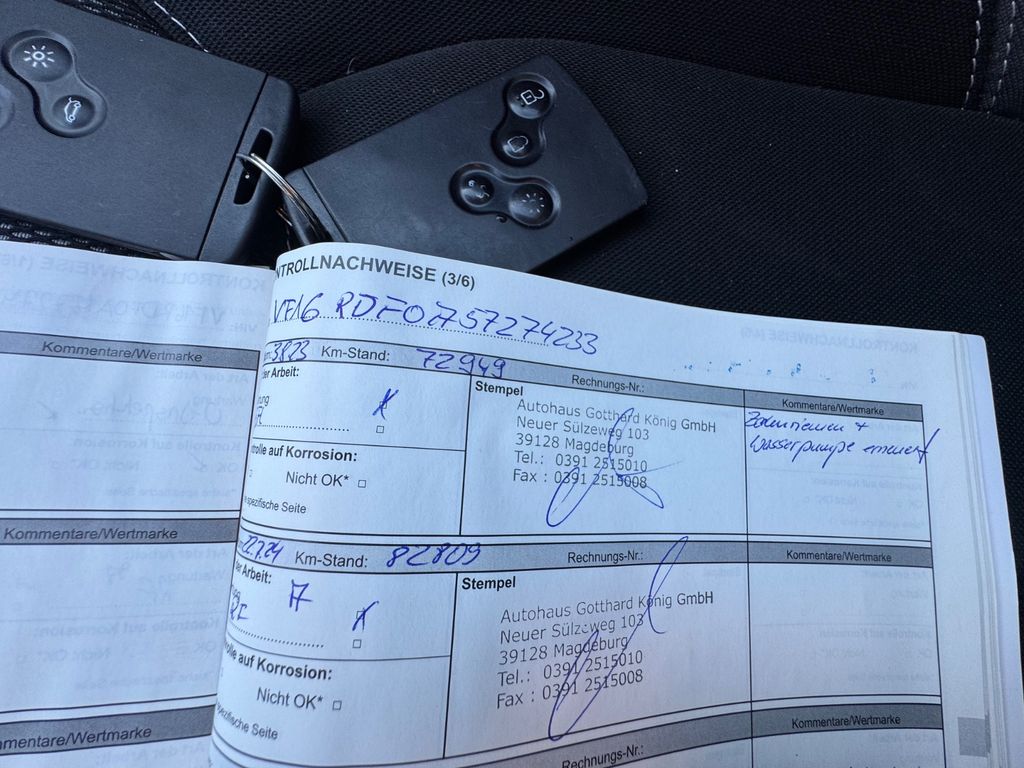 Kommentare/Wertmarke
Kommentare/Wertmarke
mmentare/Wertmarke
NTROLLNACHWEISE (3/6)
3823 Km-Stand: 72949
Rechnungs-Nr.:
Kommentare/Wertmarke
der Arbeit:
Stempel
Autohaus Gotthard König GmbH
Neuer Sülzeweg 103
39128 Magdeburg
Tel.: 0391 2515010
Fax : 0391 2515008
Zahnriemen +
Wasserpumpe erneuert
rolle auf Korrosion:
Nicht OK*
spezifische Seite
22.7.24 Km-Stand: 82809
Rechnungs-Nr.:
Kommentare/Wertmarke
der Arbeit:
A
Stempel
Autohaus Gotthard König GmbH
Neuer Sülzeweg 103
39128 Magdeburg
Tel.: 0391 2515010
Fax : 0391 2515008
rolle auf Korrosion:
Nicht OK*
spezifische Seite
Rechnungs-Nr.:
Kommentare/Wertmarke